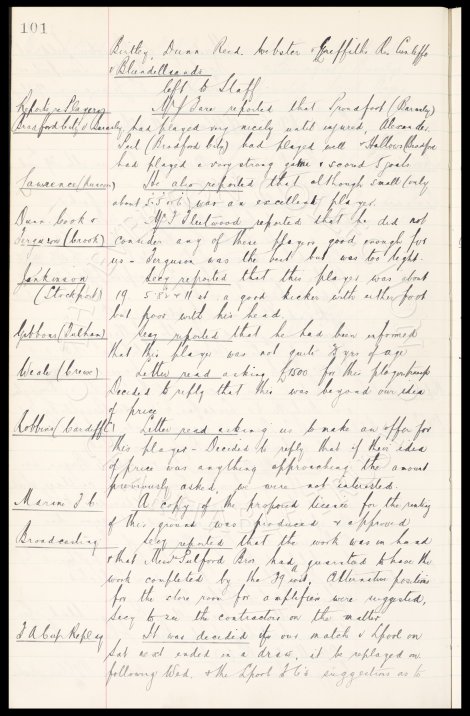 101
Birtley, Dunn Reed. Webster & Griffiths
& Blundellsands
left to Staff.
Reports re Players Mr J Fare reported that (Barnsley)
Bradford City & Barnsley had played very nicely until injured. Alexander
(Bradford City) had played well & Hallows (Bradford
had played a very strong game & scored 5 goals.
Lawrence (Runcorn) He also reported that although small (only
about 5.5 or 6) was an excellent player.
Dunn Cook & Mr J Fleetwood reported that he did not
Ferguson (Crook) consider any of these players good enough for
us - Ferguson was the best but was too light.
Jenkinson Secy reported that this player was about
(Stockport) 19 5'8" & 11 st. a good kicker with either foot
but poor with his head.
Gibbons (Fulham) Secy reported that he had been informed
that this player was not quite yrs of age
Weale (Crewe) Letter read asking £1500 for this player
Decided to reply that this was beyond our idea
of price
Robbins (Cardiff) Letter read asking us to make an offer for
this player - Decided to reply that if their idea
of price was anything approaching the amount
previously asked, we were not interested.
Marine F C A copy of the proposed licence for the renting
of this ground was produced & approved
Broadcasting Secy reported that the work was in hand
& that New Bros had guaranteed to have the
work completed by the 29 inst. Alternative positions
for the store room for amplifiers were suggested,
Secy to see the contractors on the matter
F A Cup Replay It was decided if our match v Lpool on
Sat next ended in a draw, it be replayed on
following Wed. & the Lpool F C's suggestions as to